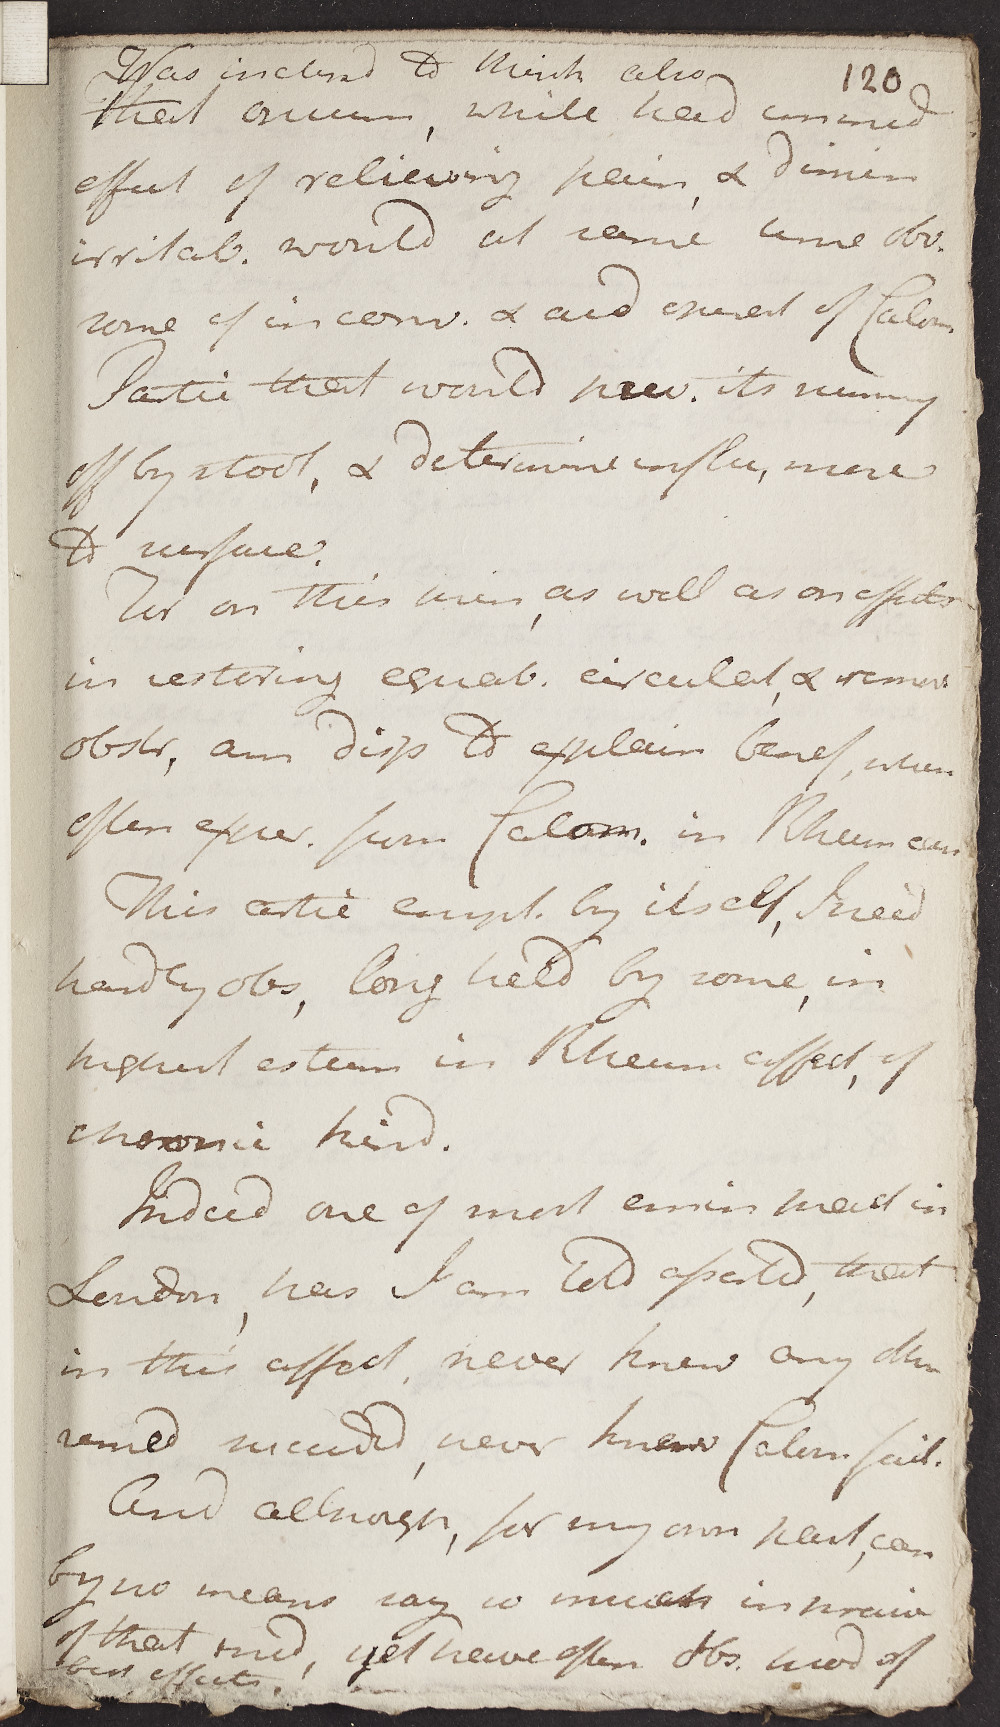 120
Was inclind to think also
that opium, while had immed
effect of relieving pain, & dimin
irritab. would at same time obv.
some of inconv. & aid operat of Calom
Partic that would prev. its running
off by stool, & determine influ, more
to surface.
For on this prin, as well as on effects
in restoring equab. circulat, & remov
obstr, am disp to explain benef, when
often exper. from Calom. in Rheum
This artic empl. by itself, I need
hardly obs, long held by some, in
highest esteem in Rheum affect, of
chronic kind.
Indeed one of most emin pract in
London, has I am told assertd, that
in this affect, never knew any other
remed succeed, never knew Calom fail.
And although, for my own part, can
by no means say so much in praise
of that med, yet have often obs. prod of
best effects.